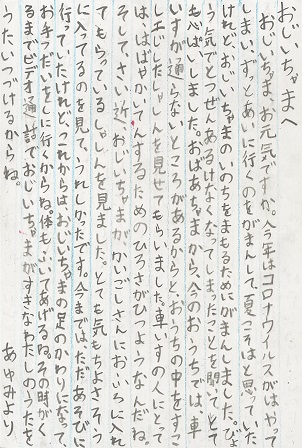 おじいちゃまへ
おじいちゃま、お元気ですか。今年はコロナウイルスがはやって
しまい、ずっとあいに行くのをがまんして、夏こそはと思っていた
けれど、おじいちゃまのいのちをまもるためにがまんしました。びょ
う気でとつぜんあるけなくなってしまったことを聞いて、とて
も心ぱいしました。おばあちゃまから、今のおうちでは、車
いすが通らないところがあるからと、おうちの中をすこ
し工じしたしゃしんを見せてもらいました。車いすの人にとって
は、はばやかいてんするためのひろさがひつようなんだね。
そしてさい近、おじいちゃまが、かいごしさんにおふろに入れ
てもらっているしゃしんを見ました。とても気もちよさそう
に入ってるのを見て、うれしかったです。今までは、ただあそびに
行っていたけれど、これからはおじいちゃまの足のかわりになって、
お手つだいをしに行くからね。体もふいてあげるね。その時がく
るまでビデオ通話でおじいちゃまがすきなわたしのうたを
うたいつづけるからね。
あゆみより